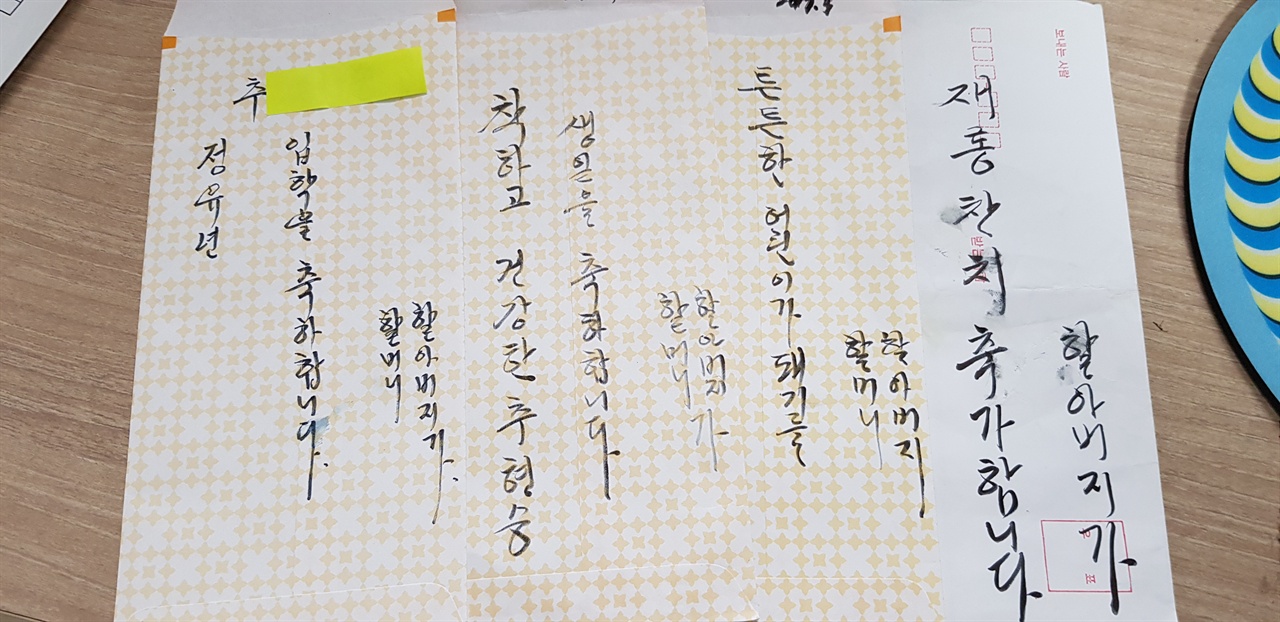 추
정유년
입학을 축하합니다.
할아버지가.
할머니
착하고 건강한 추현승
생일을 축하합니다
할아버지가
할머니
튼튼한 어린이가 돼기를
할아버지
할머니
재롱찬치 축가합니다
할아버지가
보내는 사람